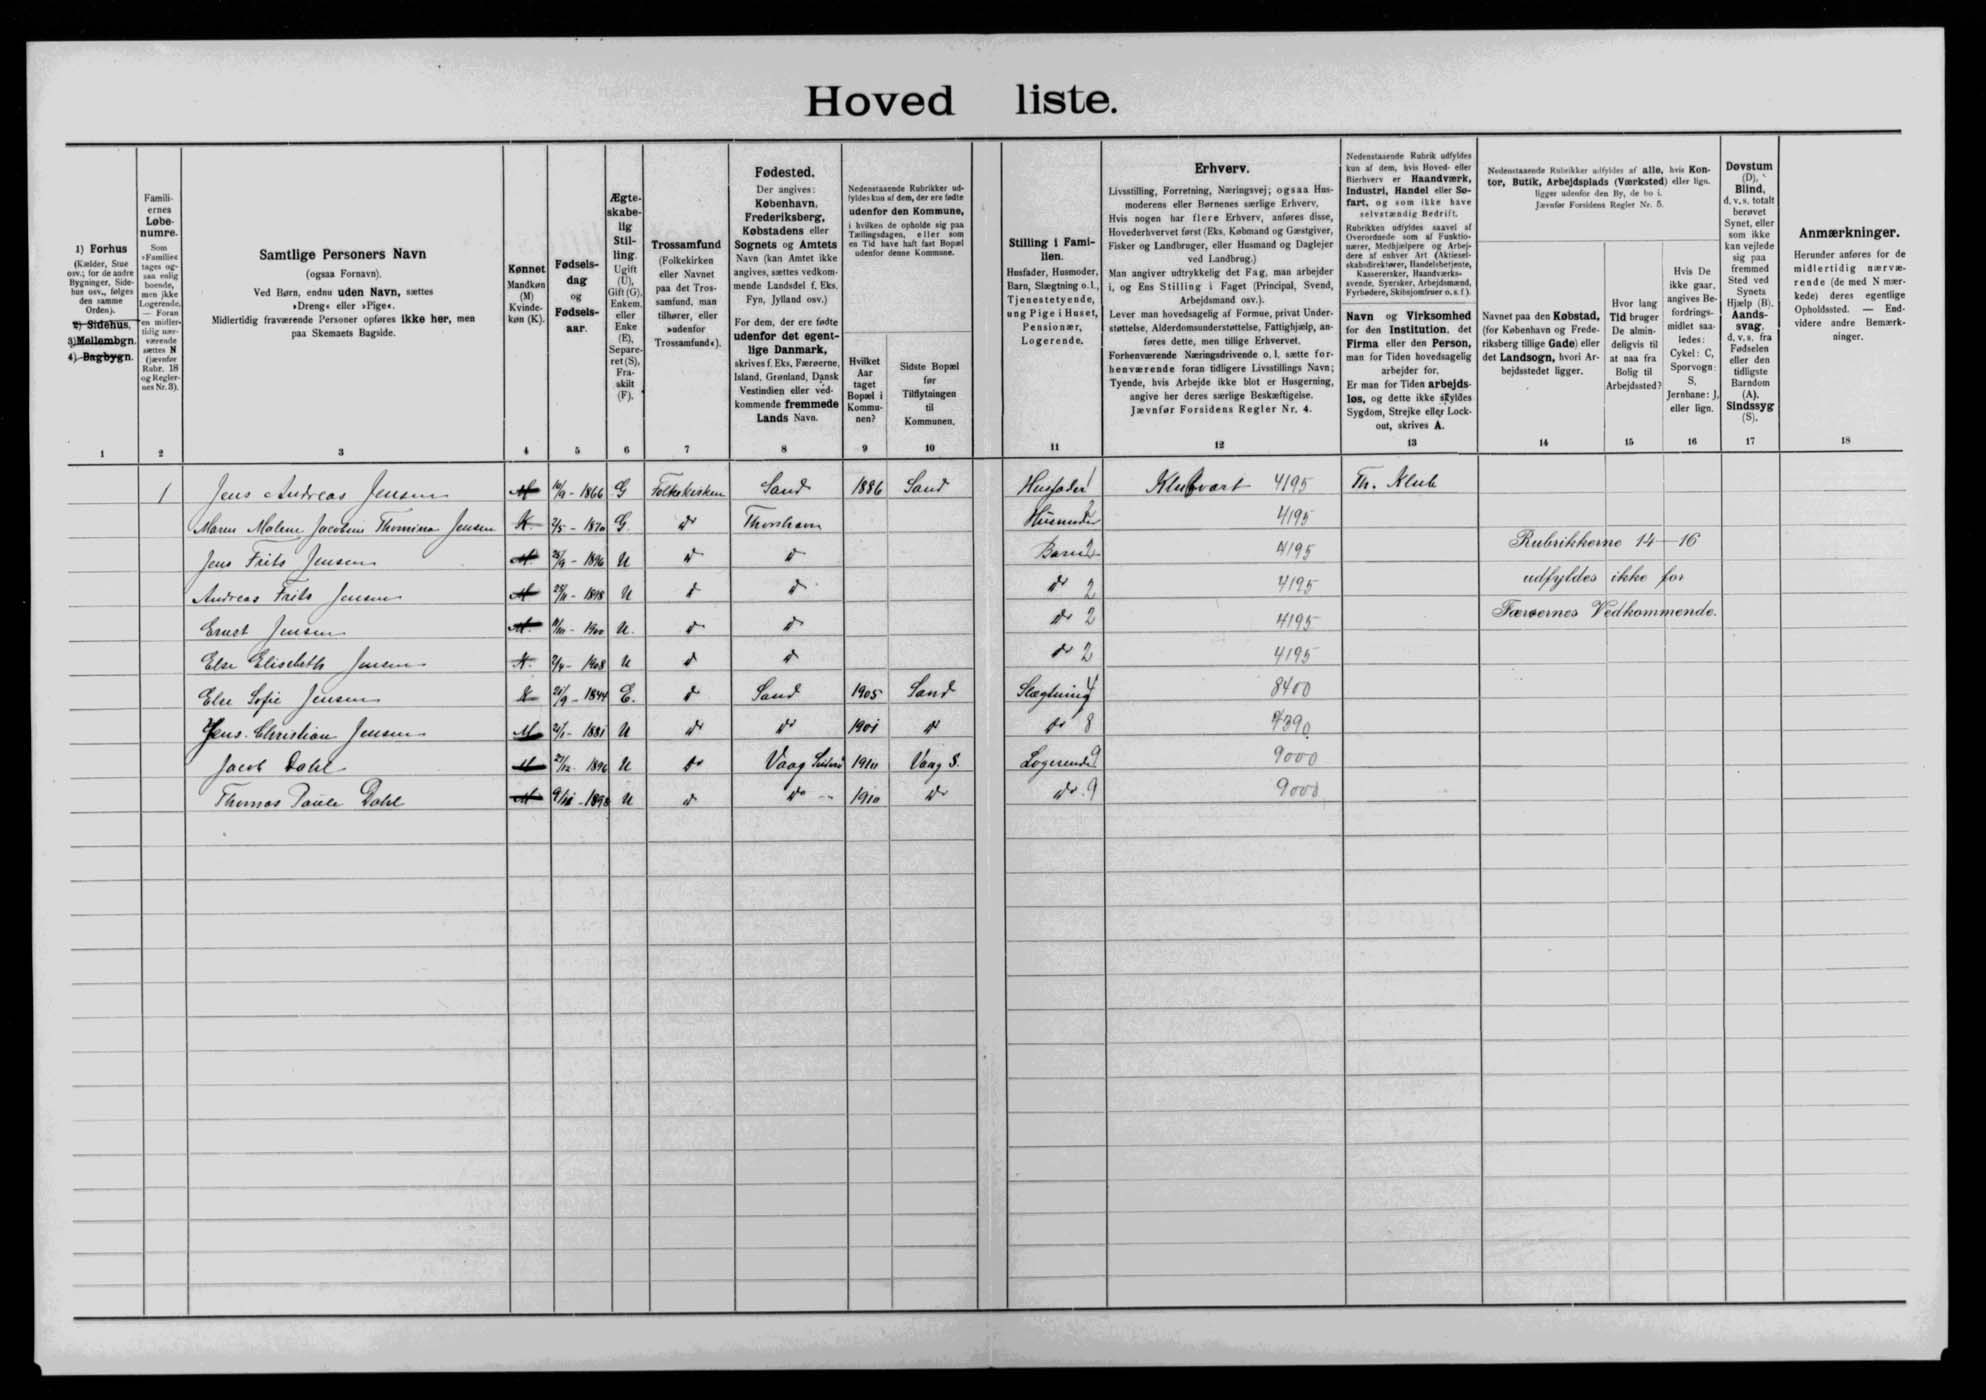 Hoved liste.
1) Forhus
(Kælder, Stue
osv.; for de andre
Bygninger, Side-
hus osv., følges
den samme
Orden).
2) Sidehus,
3) Mellembgn.
4) Bagbygn.
Famili-
ernes
Løbe-
numre.
Som
»Familie«
tages og-
saa enlig
boende,
men ikke
Logerende.
— Foran
en midler-
tidig nær-
værende
sættes N
(jævnfør
Rubr. 18
og Regler-
nes Nr. 3).
Samtlige Personers Navn
(ogsaa Fornavn).
Ved Børn, endnu uden Navn, sættes
»Dreng« eller »Pige«.
Midlertidig fraværende Personer opføres ikke her, men
paa Skemaets Bagside.
Kønnet
Mandkøn
(M)
Kvinde-
køn (K).
Fødsels-
dag
og
Fødsels-
aar.
Ægte-
skabe-
lig
Stil-
ling.
Ugift
(U),
Gift (G),
Enkem.
eller
Enke
(E),
Separe-
ret (S),
Fra-
skilt
(F).
Trossamfund
(Folkekirken
eller Navnet
paa det Tros-
samfund, man
tilhører, eller
»udenfor
Trossamfund«).
Fødested.
Der angives:
København,
Frederiksberg,
Købstadens eller
Sognets og Amtets
Navn (kan Amtet ikke
angives, sættes vedkom-
mende Landsdel f. Eks.
Fyn, Jylland osv.)
For dem, der ere fødte
udenfor det egent-
lige Danmark,
skrives f. Eks. Færøerne,
Island, Grønland, Dansk
Vestindien eller ved-
kommende fremmede
Lands Navn.
Nedenstaaende Rubrikker ud-
fyldes kun af dem, der ere fødte
udenfor den Kommune,
i hvilken de opholde sig paa
Tællingsdagen, eller som
en Tid have haft fast Bopæl
udenfor denne Kommune.
Hvilket
Aar
taget
Bopæl i
Kommu-
nen?
Sidste Bopæl
før
Tilflytningen
til
Kommunen.
Stilling i Fami-
lien.
Husfader, Husmoder,
Barn, Slægtning o.l.,
Tjenestetyende,
ung Pige i Huset,
Pensionær,
Logerende.
Erhverv.
Livsstilling, Forretning, Næringsvej; ogsaa Hus-
moderens eller Børnenes særlige Erhverv.
Hvis nogen har flere Erhverv, anføres disse,
Hovederhvervet først (Eks. Købmand og Gæstgiver,
Fisker og Landbruger, eller Husmand og Daglejer
ved Landbrug.)
Man angiver udtrykkelig det Fag, man arbejder
i, og Ens Stilling i Faget (Principal, Svend,
Arbejdsmand osv.).
Lever man hovedsagelig af Formue, privat Under-
støttelse, Alderdomsunderstøttelse, Fattighjælp, an-
føres dette, men tillige Erhvervet.
Forhenværende Næringsdrivende o. l. sætte for-
henværende foran tidligere Livsstillings Navn;
Tyende, hvis Arbejde ikke blot er Husgerning,
angive her deres særlige Beskæftigelse.
Jævnfør Forsidens Regler Nr. 4.
Nedenstaaende Rubrik udfyldes
kun af dem, hvis Hoved- eller
Bierhverv er Haandværk,
Industri, Handel eller Sø-
fart, og som ikke have
selvstændig Bedrift.
Rubrikken udfyldes saavel af
Overordnede som af Funktio-
nærer, Medhjælpere og Arbej-
dere af enhver Art (Aktiesel-
skabsdirektører, Handelsbetjente,
Kasserersker, Haandværks-
svende, Syersker, Arbejdsmænd,
Fyrbødere, Skibsjomfruer o. s. f.).
Navn og Virksomhed
for den Institution, det
Firma eller den Person,
man for Tiden hovedsagelig
arbejder for.
Er man for Tiden arbejds-
løs, og dette ikke skyldes
Sygdom, Strejke eller Lock-
out, skrives A.
Nedenstaaende Rubrikker udfyldes af alle, hvis Kon-
tor, Butik, Arbejdsplads (Værksted) eller lign.
ligger udenfor den By, de bo i.
Jævnfør Forsidens Regler Nr. 5.
Navnet paa den Købstad,
(for København og Frede-
riksberg tillige Gade) eller
det Landsogn, hvori Ar-
bejdsstedet ligger.
Hvor lang
Tid bruger
De almin-
deligvis til
at naa fra
Bolig til
Arbejdssted?
Hvis De
ikke gaar,
angives Be-
fordrings-
midlet saa-
ledes:
Cykel: C,
Sporvogn:
S,
Jernbane: J,
eller lign.
Døvstum
(D),
Blind,
d. v. s. totalt
berøvet
Synet, eller
som ikke
kan vejlede
sig paa
fremmed
Sted ved
Synets
Hjælp (B).
Aands-
svag,
d. v. s. fra
Fødselen
eller den
tidligste
Barndom
(A).
Sindssyg
(S).
Anmærkninger.
Herunder anføres for de
midlertidig nærvæ-
rende (de med N mær-
kede) deres egentlige
Opholdssted. — End-
videre andre Bemærk-
ninger.
1 2 3 4 5 6 7 8 9 10 11 12 13 14 15 16 17 18
1 Jens Andreas Jensen M 1866 G Folkekirken Sand 1886 Sand Husfader 1 Klubvært 4195 Th. Klub
Maren Malene Jacobine Thomina Jensen K. 2/5 - 1870 G. do Thorshavn Husmoder 2 4195
Jens Frits Jensen M 1896 U do do Barn 2 4195
Andreas Frits Jensen M 1898 U do do do 2 4195
Ernst Jensen M. 1900 U. do do do 2 4195
Else Elisebeth Jensen K. 1908 U do do do 2 4195
Else Sofie Jensen K 1844 E. do Sand 1905 Sand Slægtning 4 8400
Jens Christian Jensen M 1881 U do do 1901 do do 8 4390
Jacob Dahl M 1896 U do Vaag Suderø 1910 Vaag S. Logerende 9 9000
Thomas Paule Dahl M 1898 U do do 1910 do do 9 9000
Rubrikkerne 14—16
udfyldes ikke for
Færøernes Vedkommende.